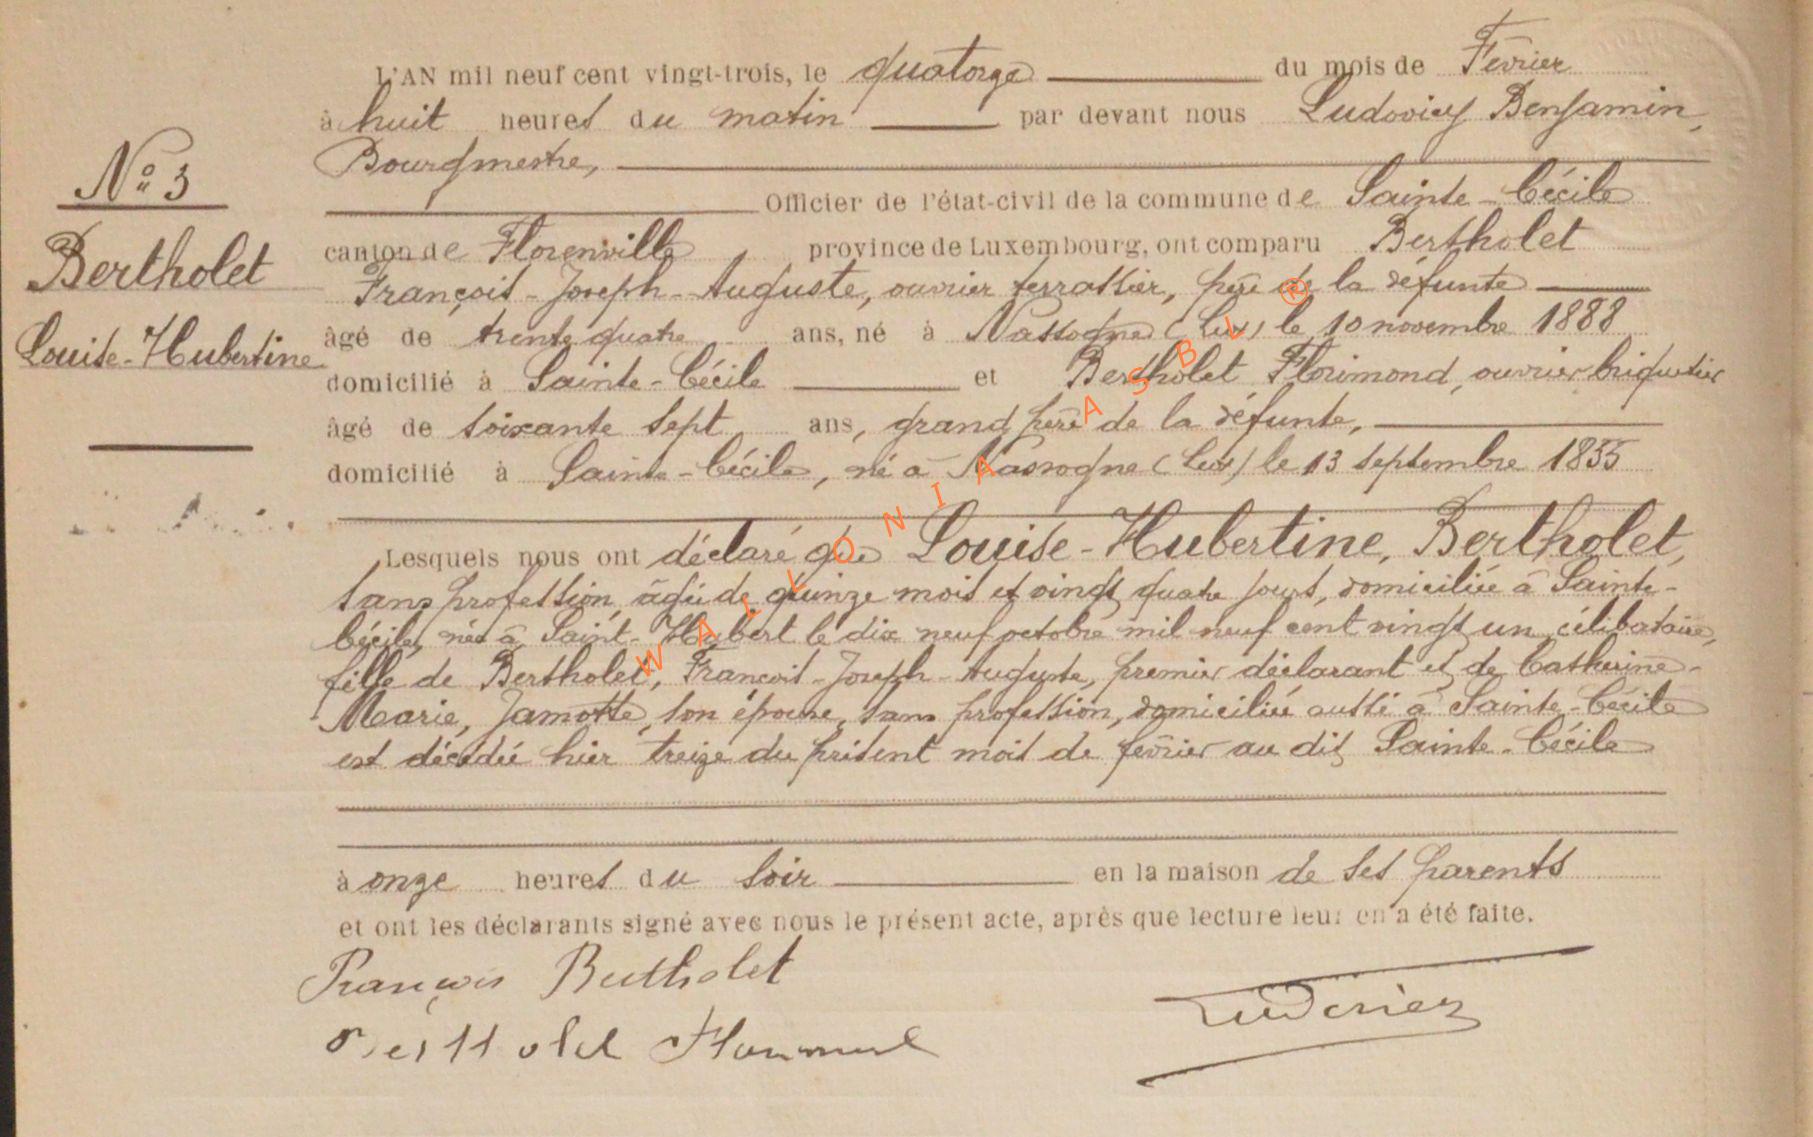 L'AN mil neuf cent vingt-trois, le quatorze du mois de Février
à huit heures du matin par devant nous Ludovicy Benjamin,
Bourgmestre,
Officier de l'état-civil de la commune de Sainte-Cécile
canton de Florenville province de Luxembourg, ont comparu Bertholet
François-Joseph-Auguste, ouvrier terrassier, père de la défunte
âgé de trente quatre ans, né à Nassogne (Lux) le 10 novembre 1888
domicilié à Sainte-Cécile et Bertholet Florimond, ouvrier briquetier
âgé de soixante sept ans, grand père de la défunte,
domicilié à Sainte-Cécile, né à Nassogne (Lux) le 13 septembre 1855
Lesquels nous ont déclaré que Louise-Hubertine, Bertholet,
sans profession, âgée de quinze mois et vingt quatre jours, domiciliée à Sainte-
Cécile, née à Saint-Hubert le dix neuf octobre mil neuf cent vingt un, célibataire,
fille de Bertholet, François-Joseph-Auguste, premier déclarant et de Catherine-
Marie, Jamotte, son épouse, sans profession, domiciliée aussi à Sainte-Cécile
est décédée hier treize du présent mois de février au dit Sainte-Cécile
à onze heures du soir en la maison de ses parents
et ont les déclarants signé avec nous le présent acte, après que lecture leur en a été faite.
François Bertholet
Bertholet
N° 3
Bertholet
Louise-Hubertine
WALLONIA ASBL ®